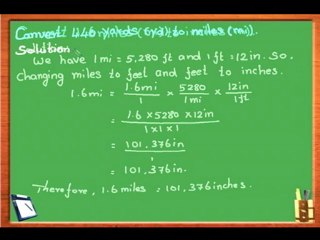 Convert
Solution
We have 1mi = 5,280 ft and 1 ft = 12in. So,
changing miles to feet and feet to inches.
1.6mi = 1.6mi/1 x 5280/1mi x 12in/1ft
= 1.6 x 5280 x 12in/1 x 1 x 1
= 101,376in/1
= 101,376in.
Therefore, 1.6miles = 101,376inches.